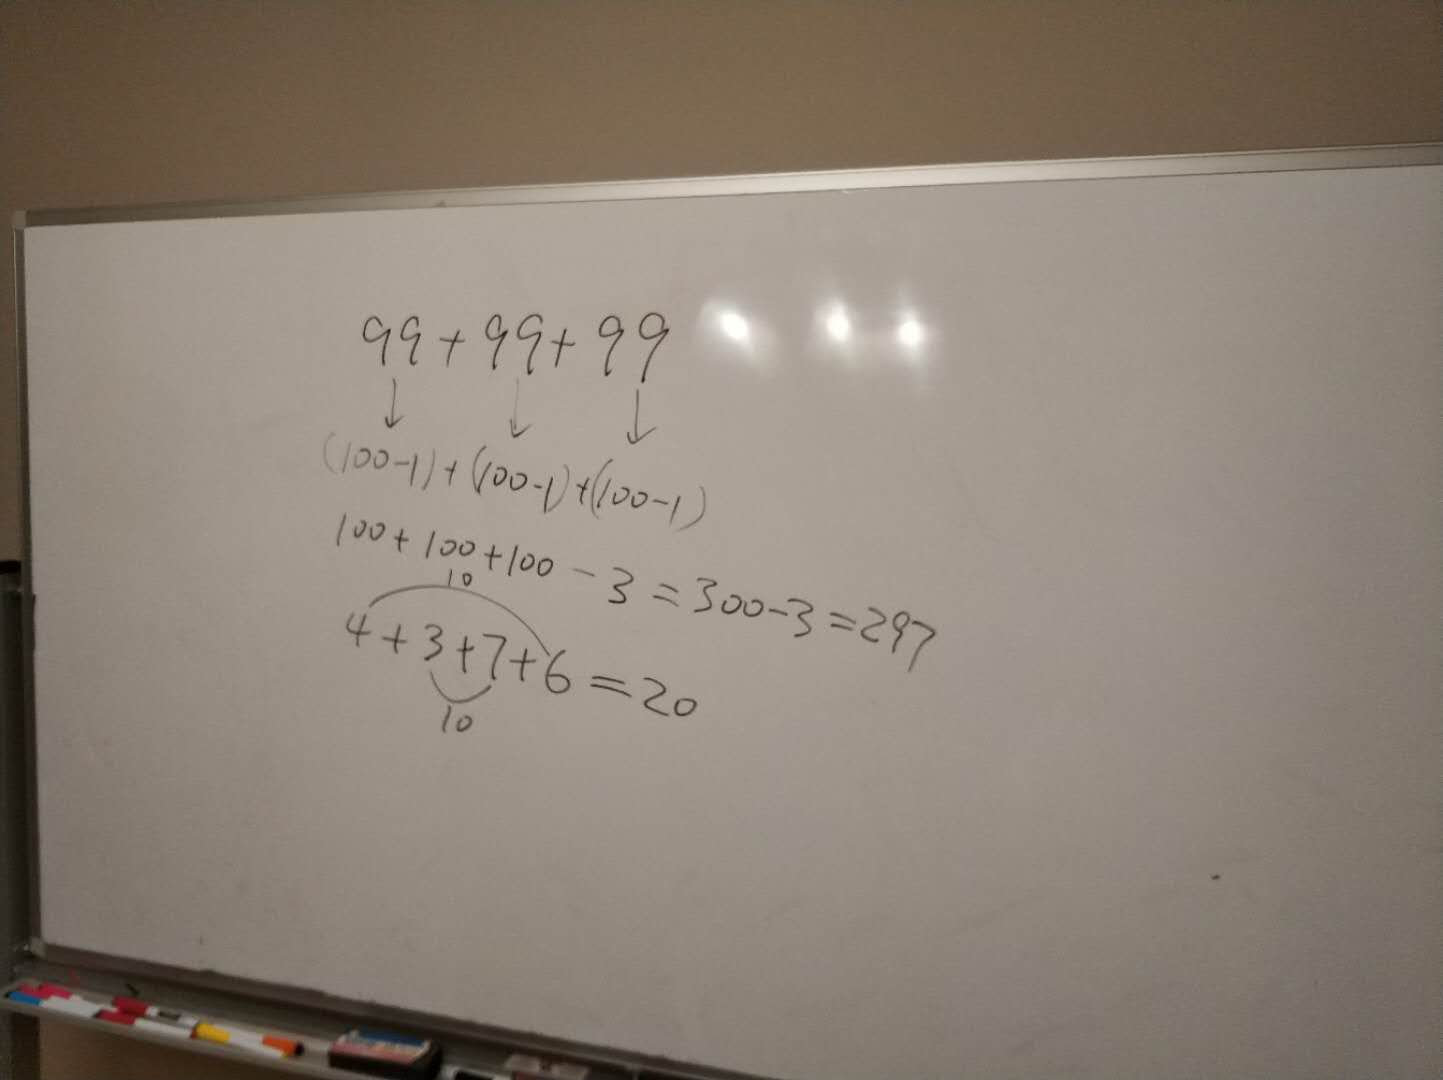 99+99+99
(100-1)+(100-1)+(100-1)
100+100+100-3=300-3=297
10
4+3+7+6=20
10